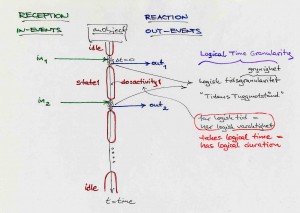 RECEPTION
IN-EVENTS
anObject
REACTION
OUT-EVENTS
idle
in1
Δt=0
out1
state1
doActivity1
in2
out2
idle
t=time
Logical Time Granularity
grynighet
Logisk tidsgranularitet
"Tidens Tuggmotstånd"
tar logisk tid =
har logisk varaktighet
takes logical time =
has logical duration